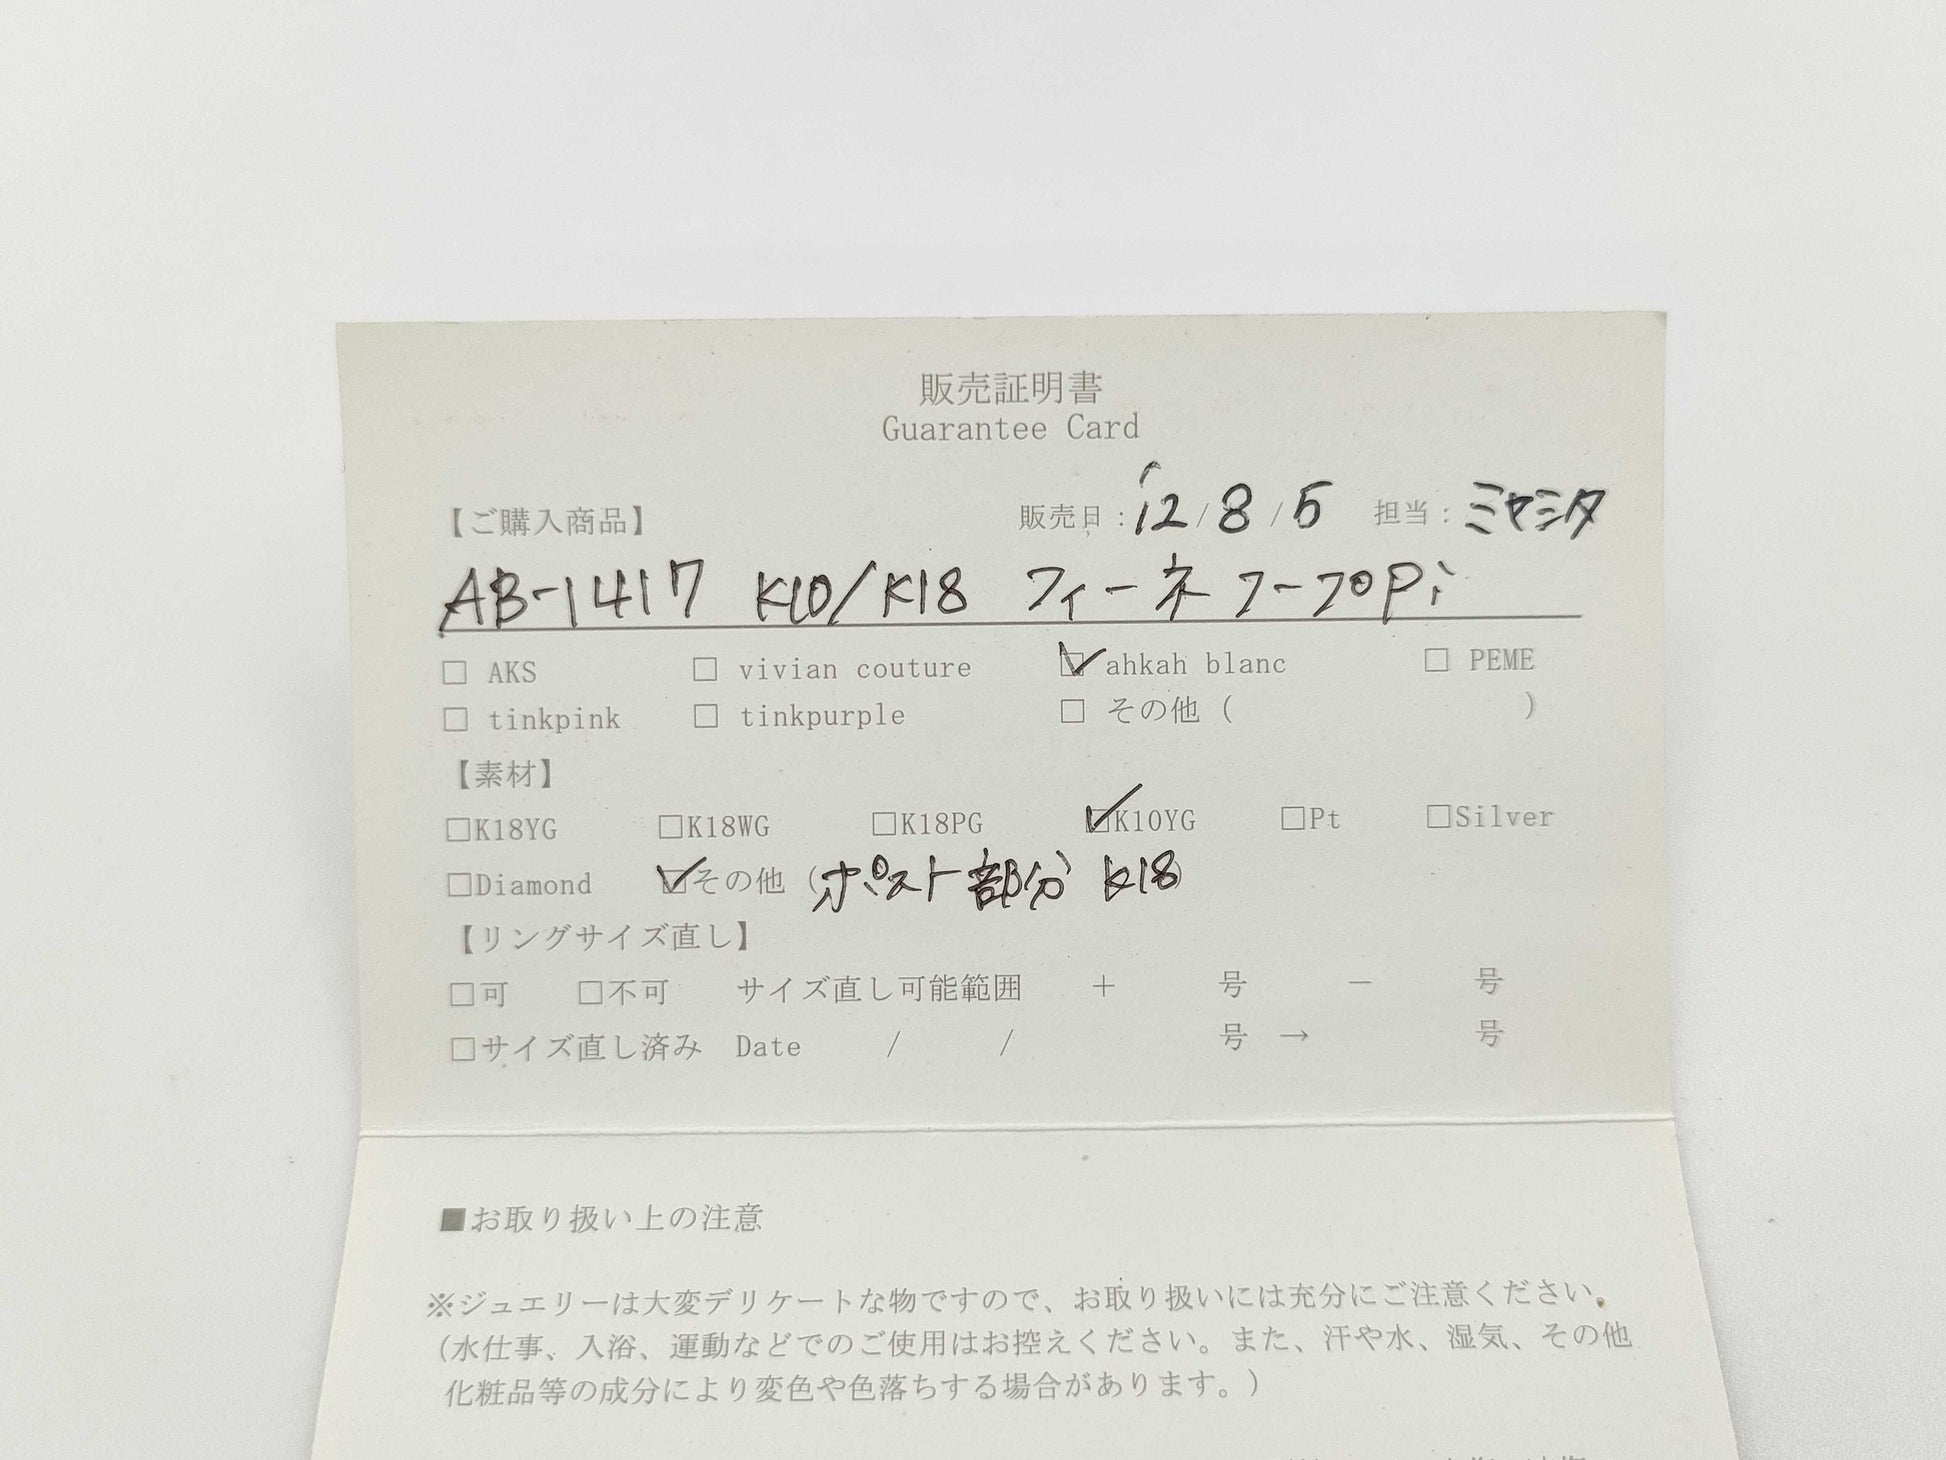 販売証明書
Guarantee Card
【ご購入商品】 販売日：'12/8/5 担当：ミヤシタ
AB-1417 K10/K18 フィーネフープPi
□ AKS □ vivian couture ☑ ahkah blanc □ PEME
□ tinkpink □ tinkpurple □ その他（ ）
【素材】
□K18YG □K18WG □K18PG ☑K10YG □Pt □Silver
□Diamond ☑その他（ポスト部分 K18）
【リングサイズ直し】
□可 □不可 サイズ直し可能範囲 ＋ 号 － 号
□サイズ直し済み Date / / 号 → 号
■お取り扱い上の注意
※ジュエリーは大変デリケートな物ですので、お取り扱いには充分にご注意ください。
（水仕事、入浴、運動などでのご使用はお控えください。また、汗や水、湿気、その他
化粧品等の成分により変色や色落ちする場合があります。）